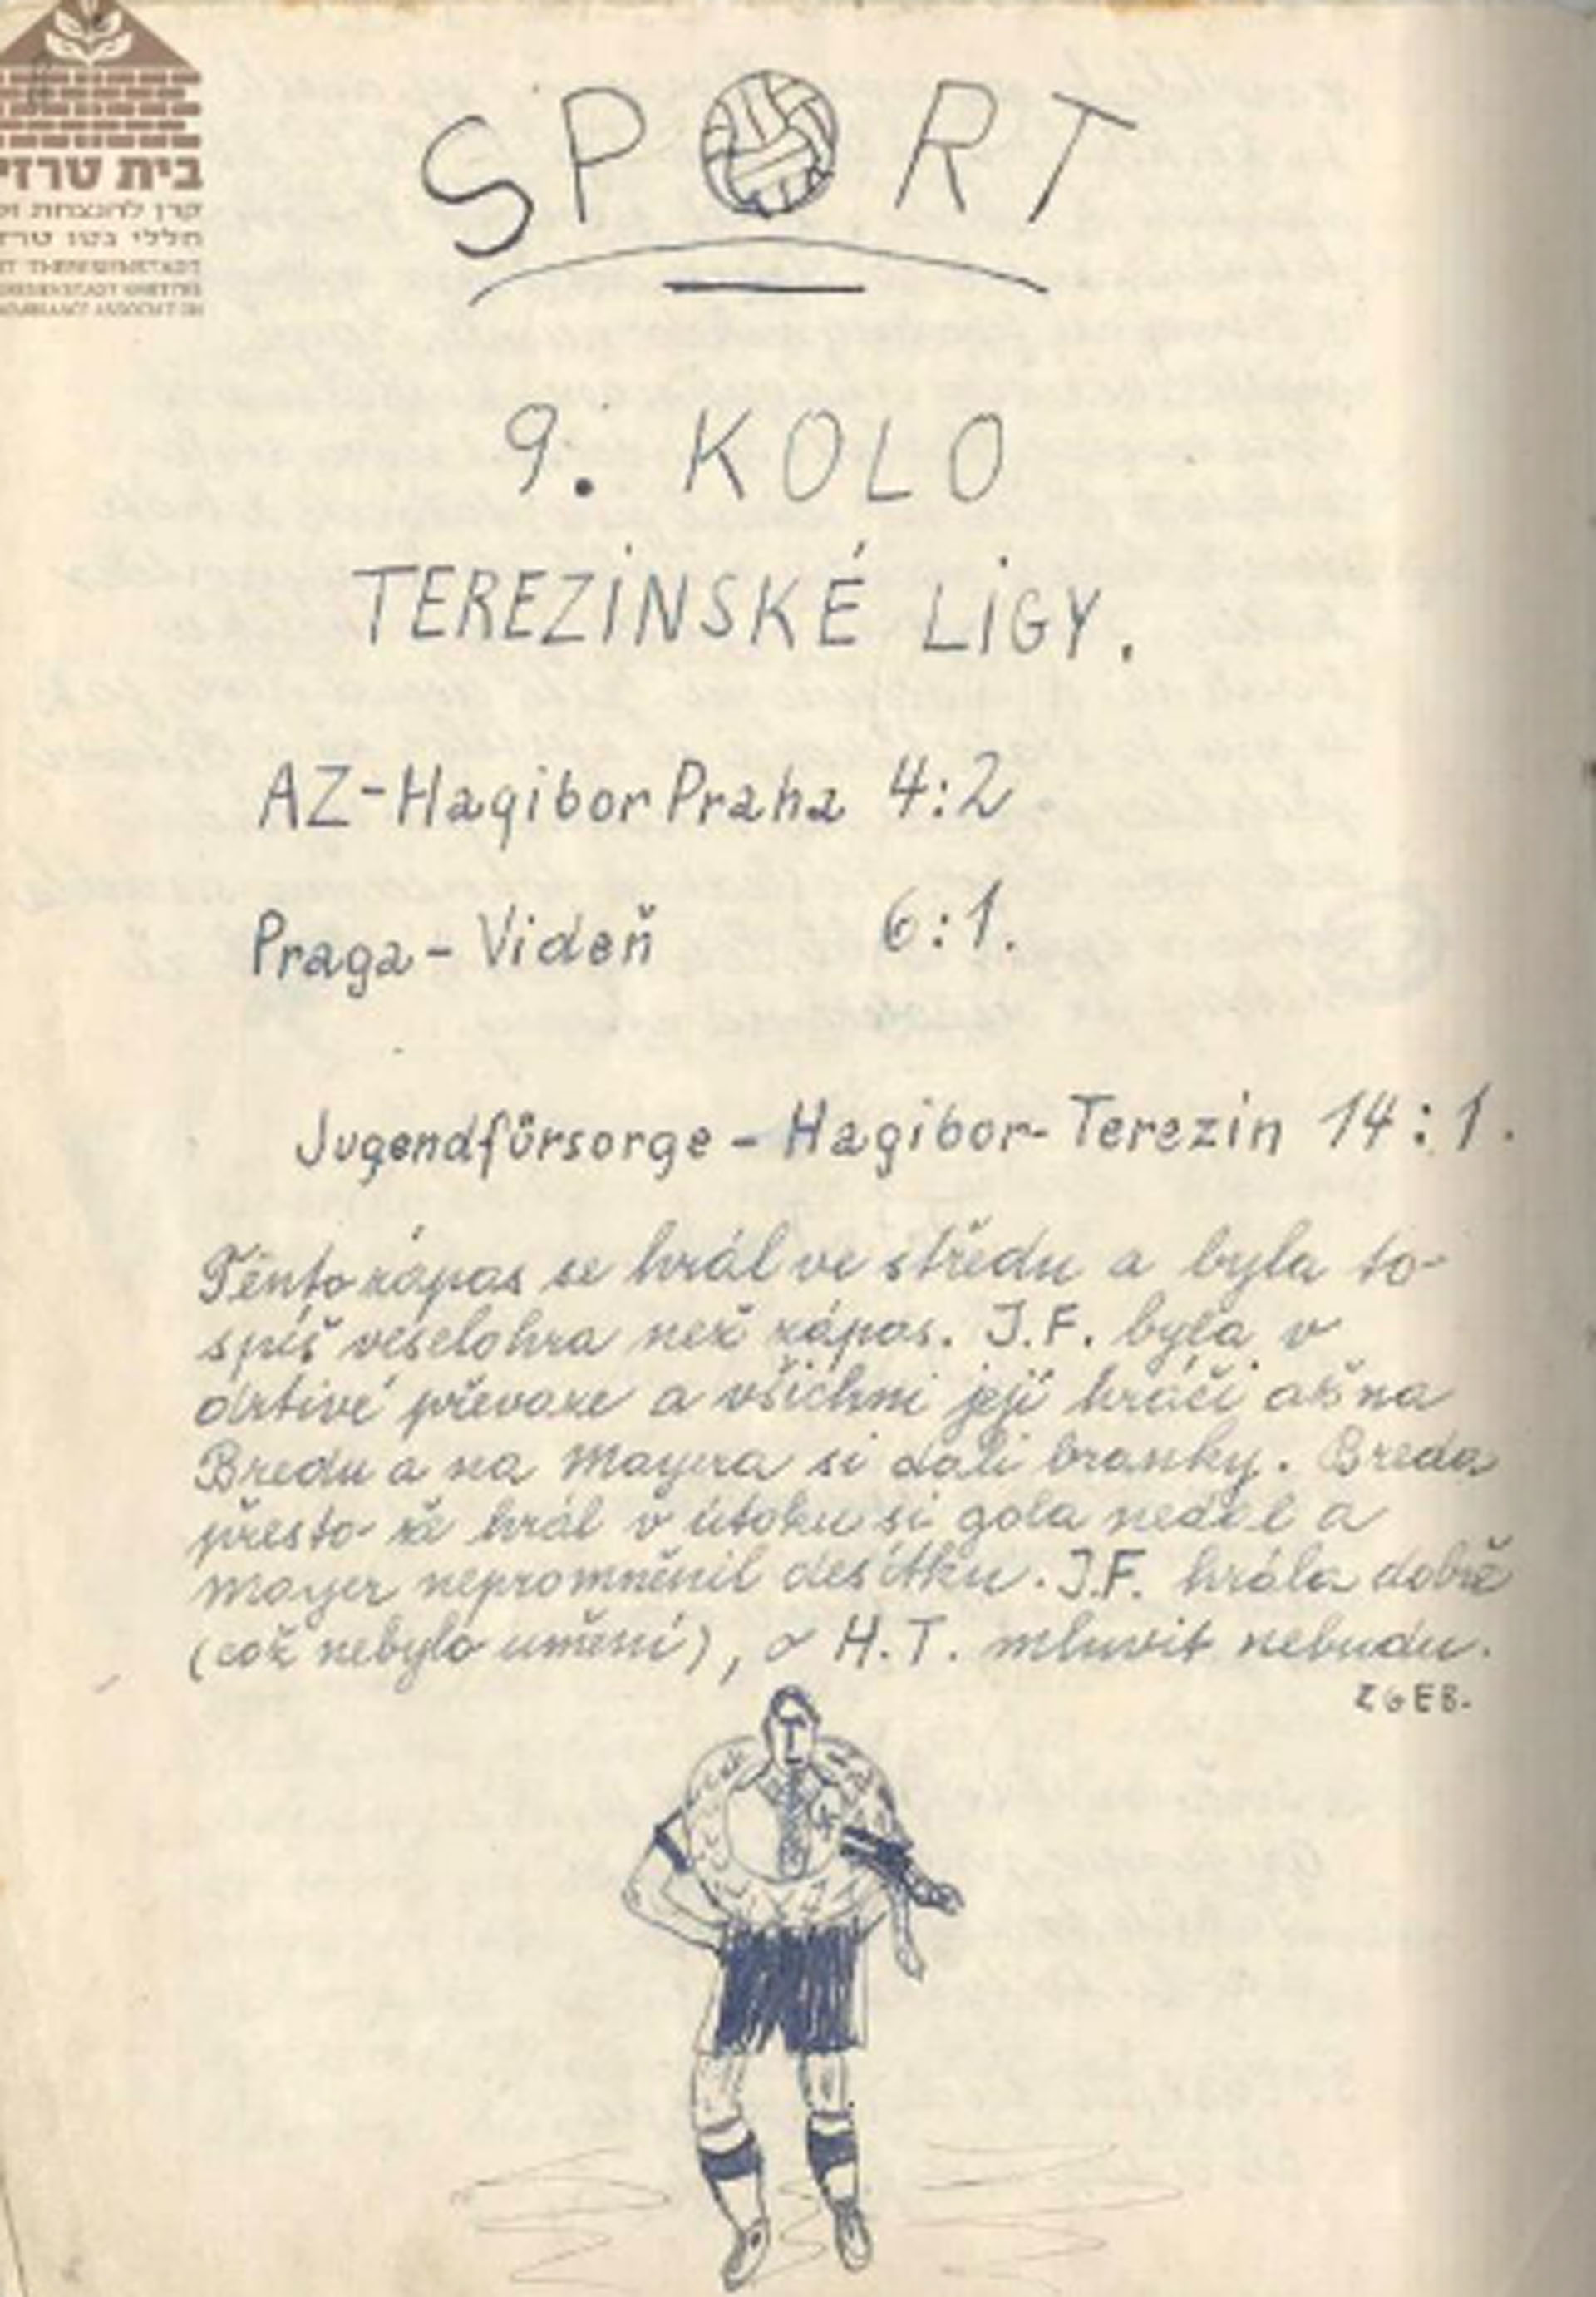 בית טרזי
SPORT
9. KOLO
TEREZINSKÉ LIGY.
AZ-Hagibor Praha 4:2
Praga - Videň 6:1.
Jugendfürsorge - Hagibor-Terezin 14:1.
Tento zápas se hrál ve středu a byla to
spíš veselohra než zápas. J.F. byla v
drtivé převaze a všichni její hráči až na
Bredu a na Mayera si dali branky. Breda
přesto že hrál v útoku si gola nedal a
Mayer nepromněnil desítku. J.F. hrála dobře
(což nebylo umění), o H.T. mluvit nebudu.
ZGEB.